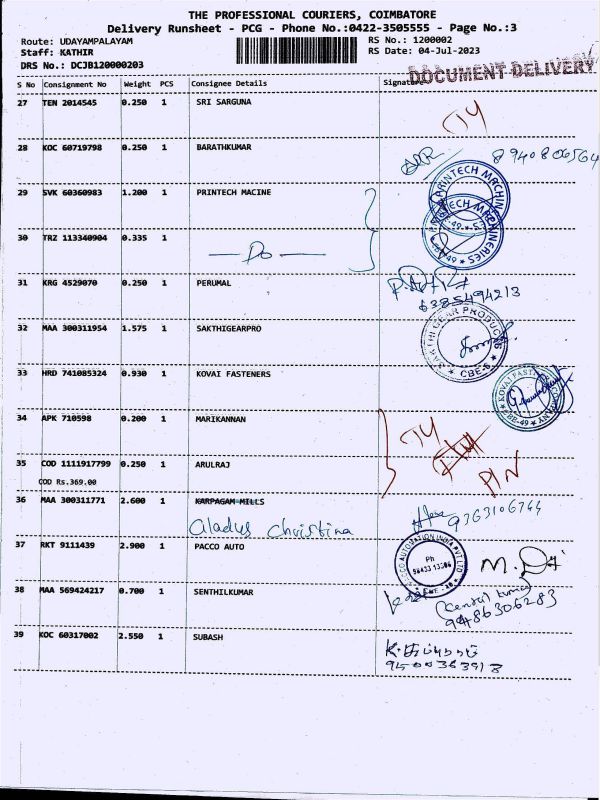 THE PROFESSIONAL COURIERS, COIMBATORE
Delivery Runsheet - PCG - Phone No.:0422-3505555 - Page No.:3
Route: UDAYAMPALAYAM RS No.: 1200002
Staff: KATHIR RS Date: 04-Jul-2023
DRS No.: DCJB120000203
DOCUMENT DELIVERY
S No Consignment No Weight PCS Consignee Details Signature
27 TEN 2014545 0.250 1 SRI SARGUNA
28 KOC 60719798 0.250 1 BARATHKUMAR
29 SVK 60360983 1.200 1 PRINTECH MACINE
30 TRZ 113340904 0.335 1
Do
31 KRG 4529070 0.250 1 PERUMAL
6385494213
32 MAA 300311954 1.575 1 SAKTHIGEARPRO
SAKTHI GEAR PRODUCTS
CBE-6
33 HRD 741085324 0.930 1 KOVAI FASTENERS
34 APK 710598 0.200 1 MARIKANNAN
35 COD 1111917799 0.250 1 ARULRAJ
COD Rs.369.00
PIN
36 MAA 300311771 2.600 1 KARPAGAM MILLS
Gladys Christina 9363106744
37 RKT 9111439 2.900 1 PACCO AUTO
Ph
38 MAA 569424217 0.700 1 SENTHILKUMAR
9486306283
39 KOC 60317002 2.550 1 SUBASH
9500363913